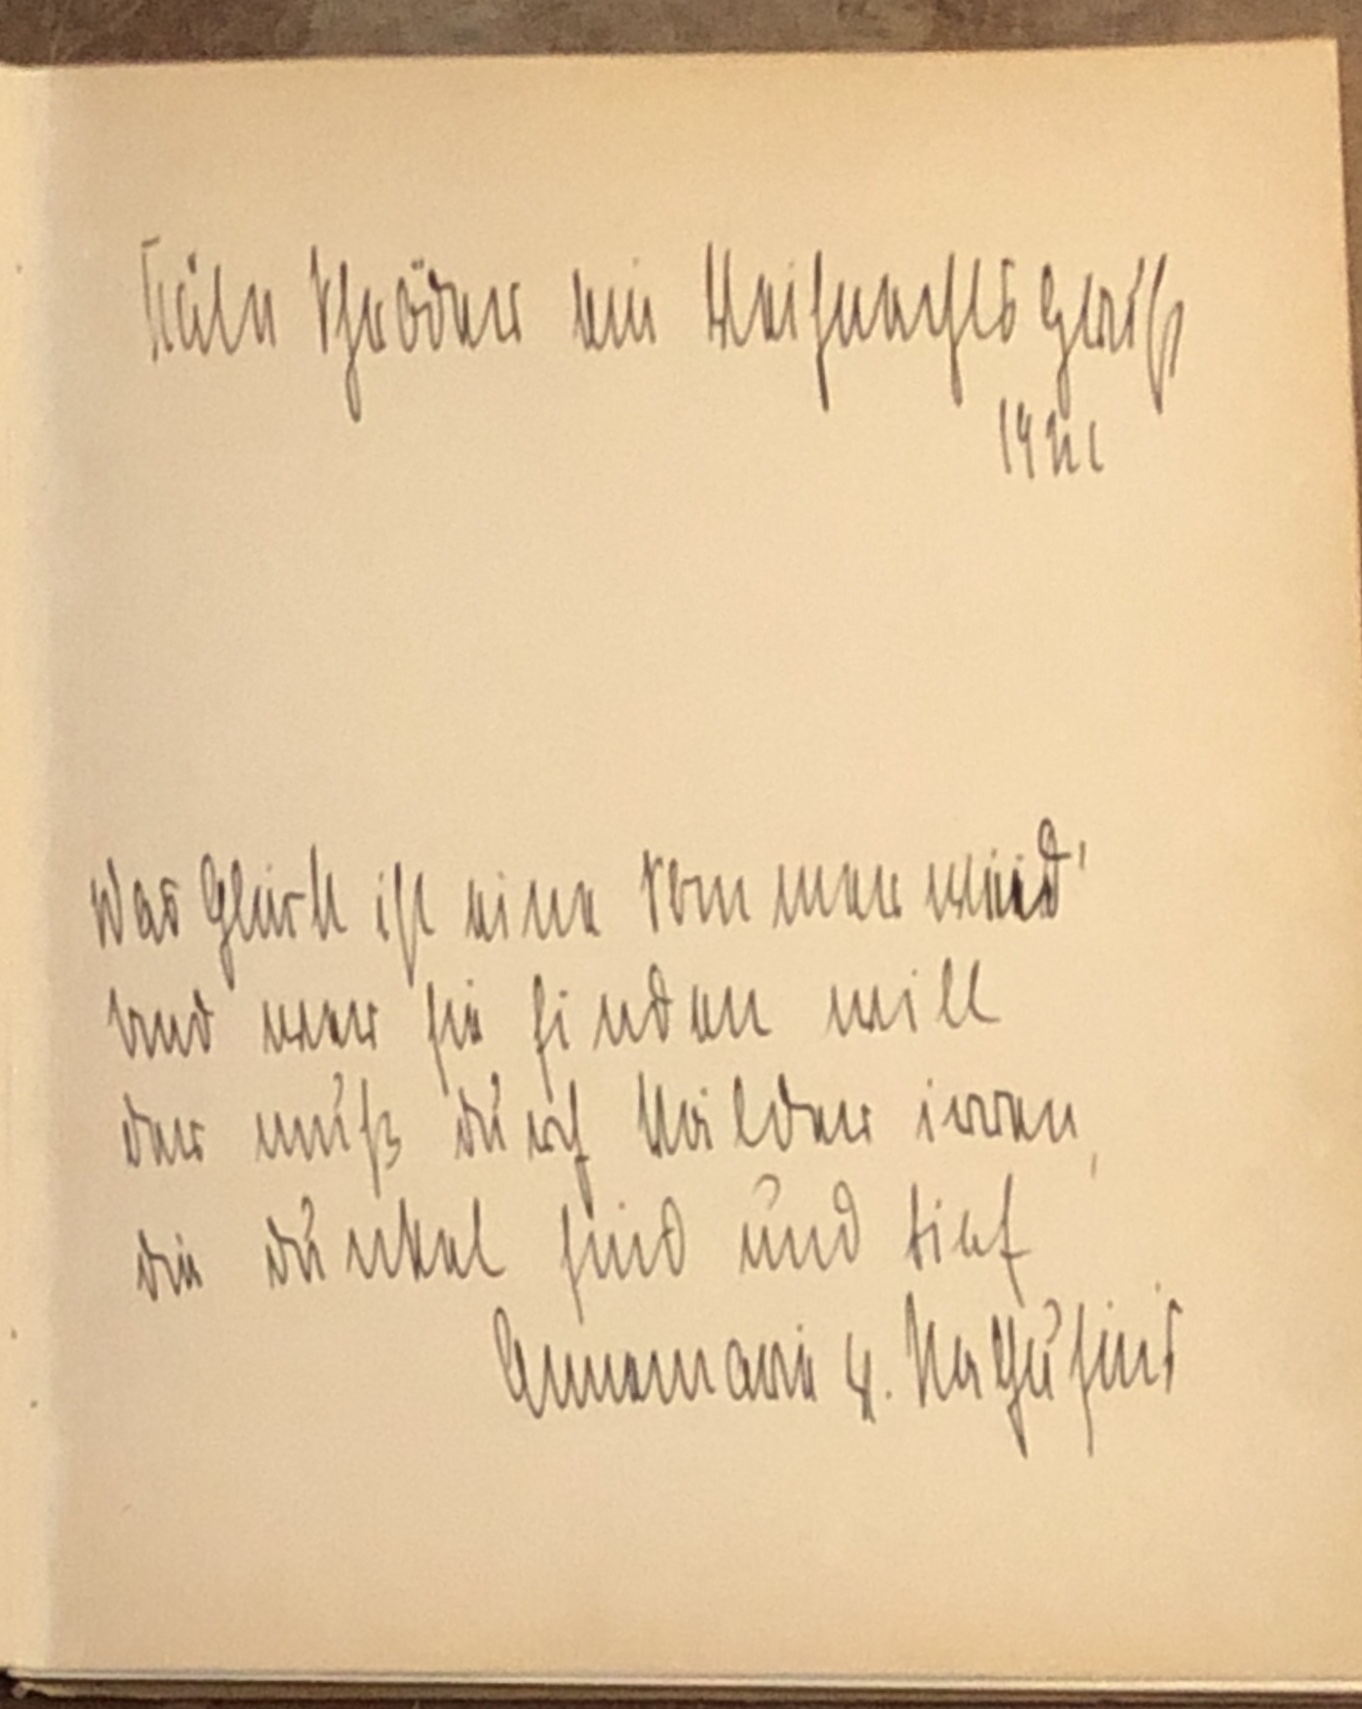 Schröder ein Weihnachtsgruß
Das Glück ist eine Kommerwind
und wer sie finden will
der muß durch Wälder irren,
die dunkel sind und tief
Annemarie v. Nathusius